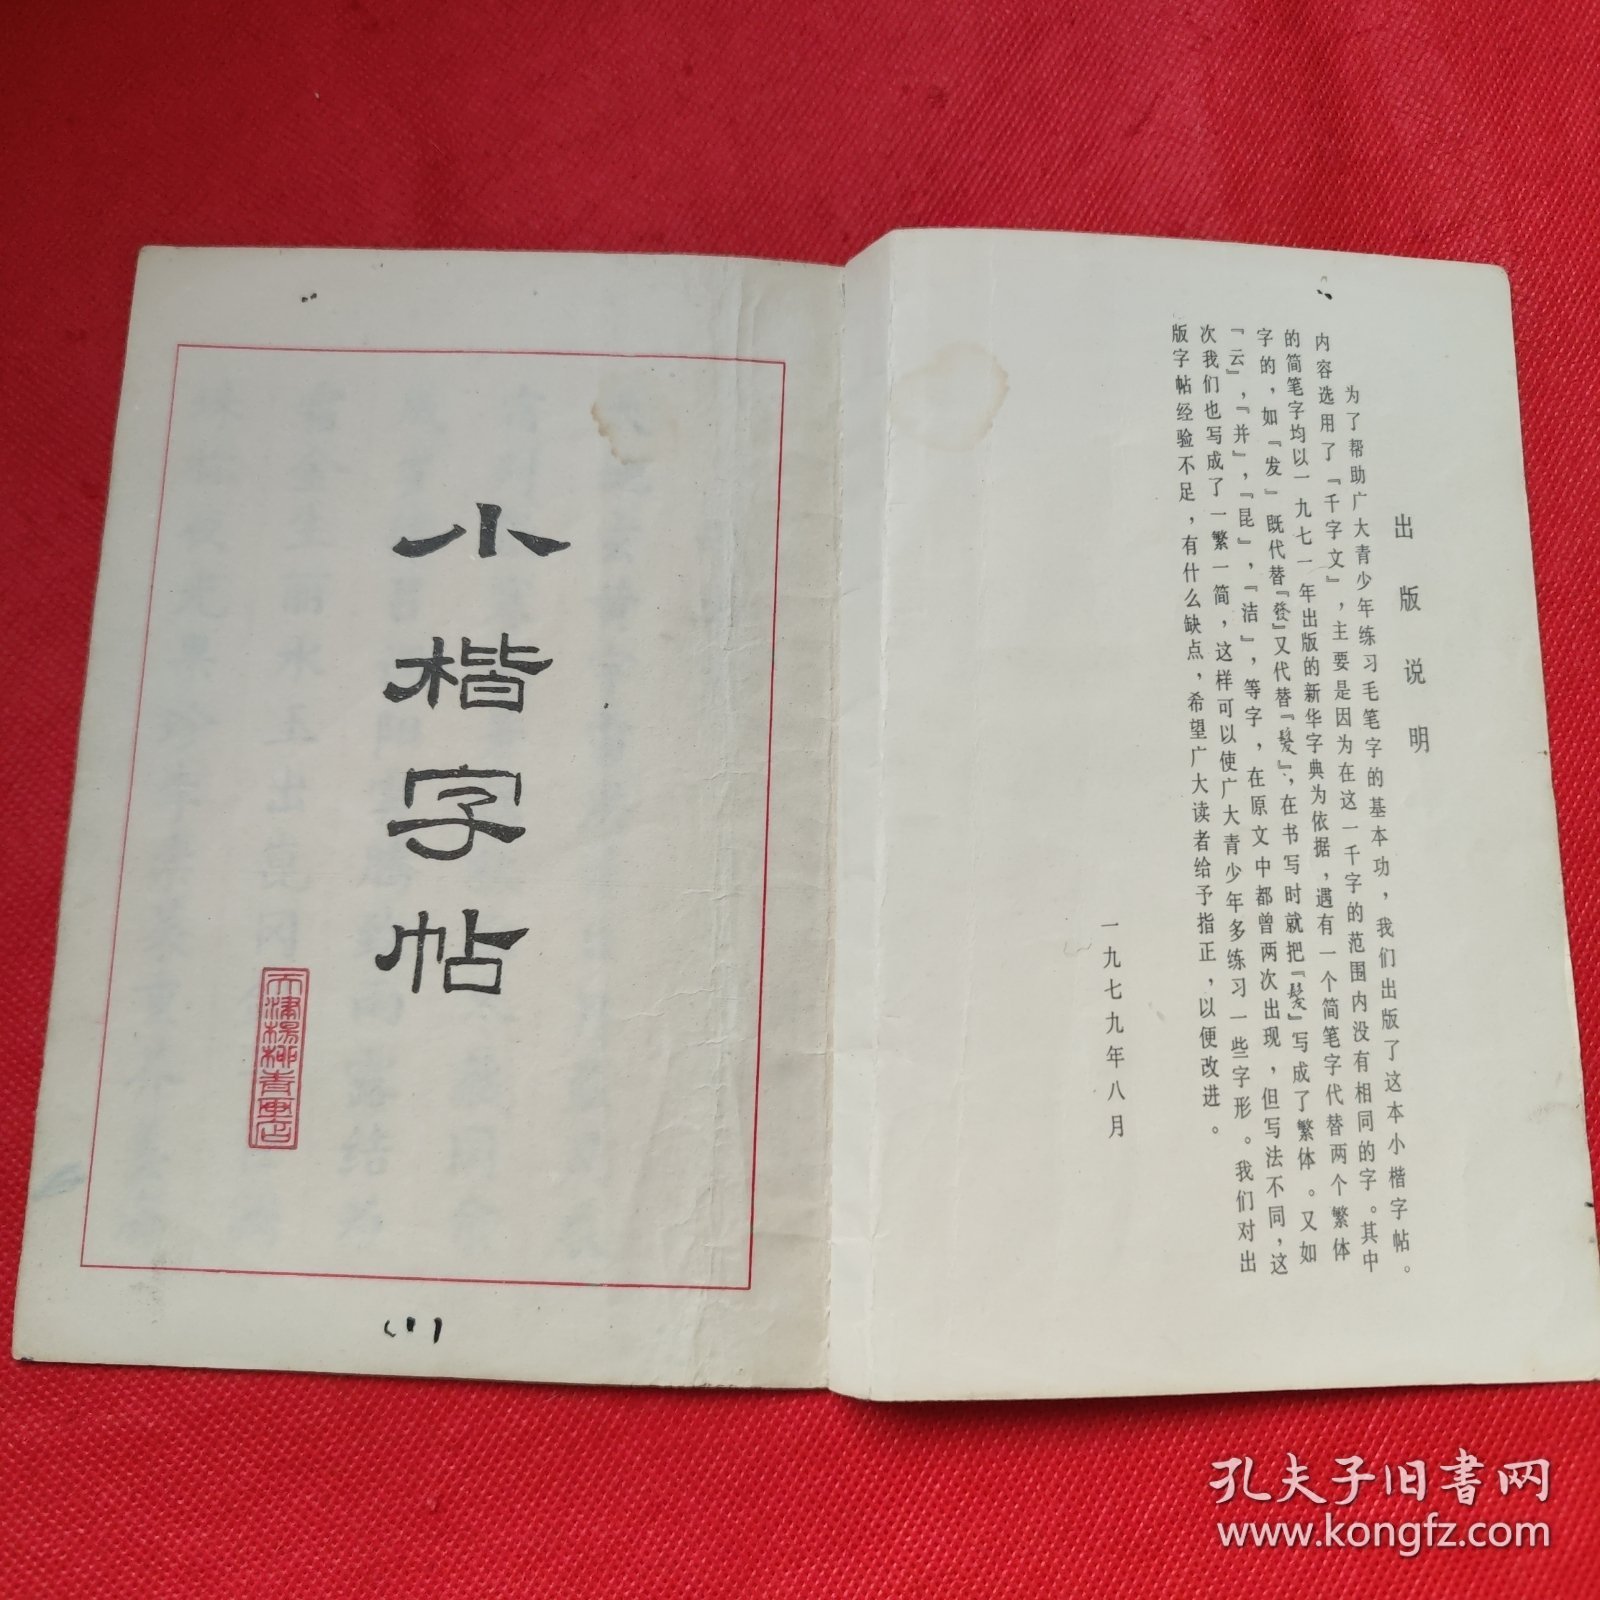 出版说明
为了帮助广大青少年练习毛笔字的基本功，我们出版了这本小楷字帖。
内容选用了『千字文』，主要是因为在这一千字的范围内没有相同的字。其中
的简笔字均以一九七一年出版的新华字典为依据，遇有一个简笔字代替两个繁体
字的，如『发』既代替『發』又代替『髮』，在书写时就把『髮』写成了繁体。又如
『云』，『并』，『昆』，『洁』，等字，在原文中都曾两次出现，但写法不同，这
次我们也写成了一繁一简，这样可以使广大青少年多练习一些字形。我们对出
版字帖经验不足，有什么缺点，希望广大读者给予指正，以便改进。
一九七九年八月
小楷字帖
天津杨柳青画店
(1)
孔夫子旧书网
www.kongfz.com